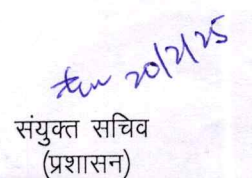 20/2/25
संयुक्त सचिव
(प्रशासन)